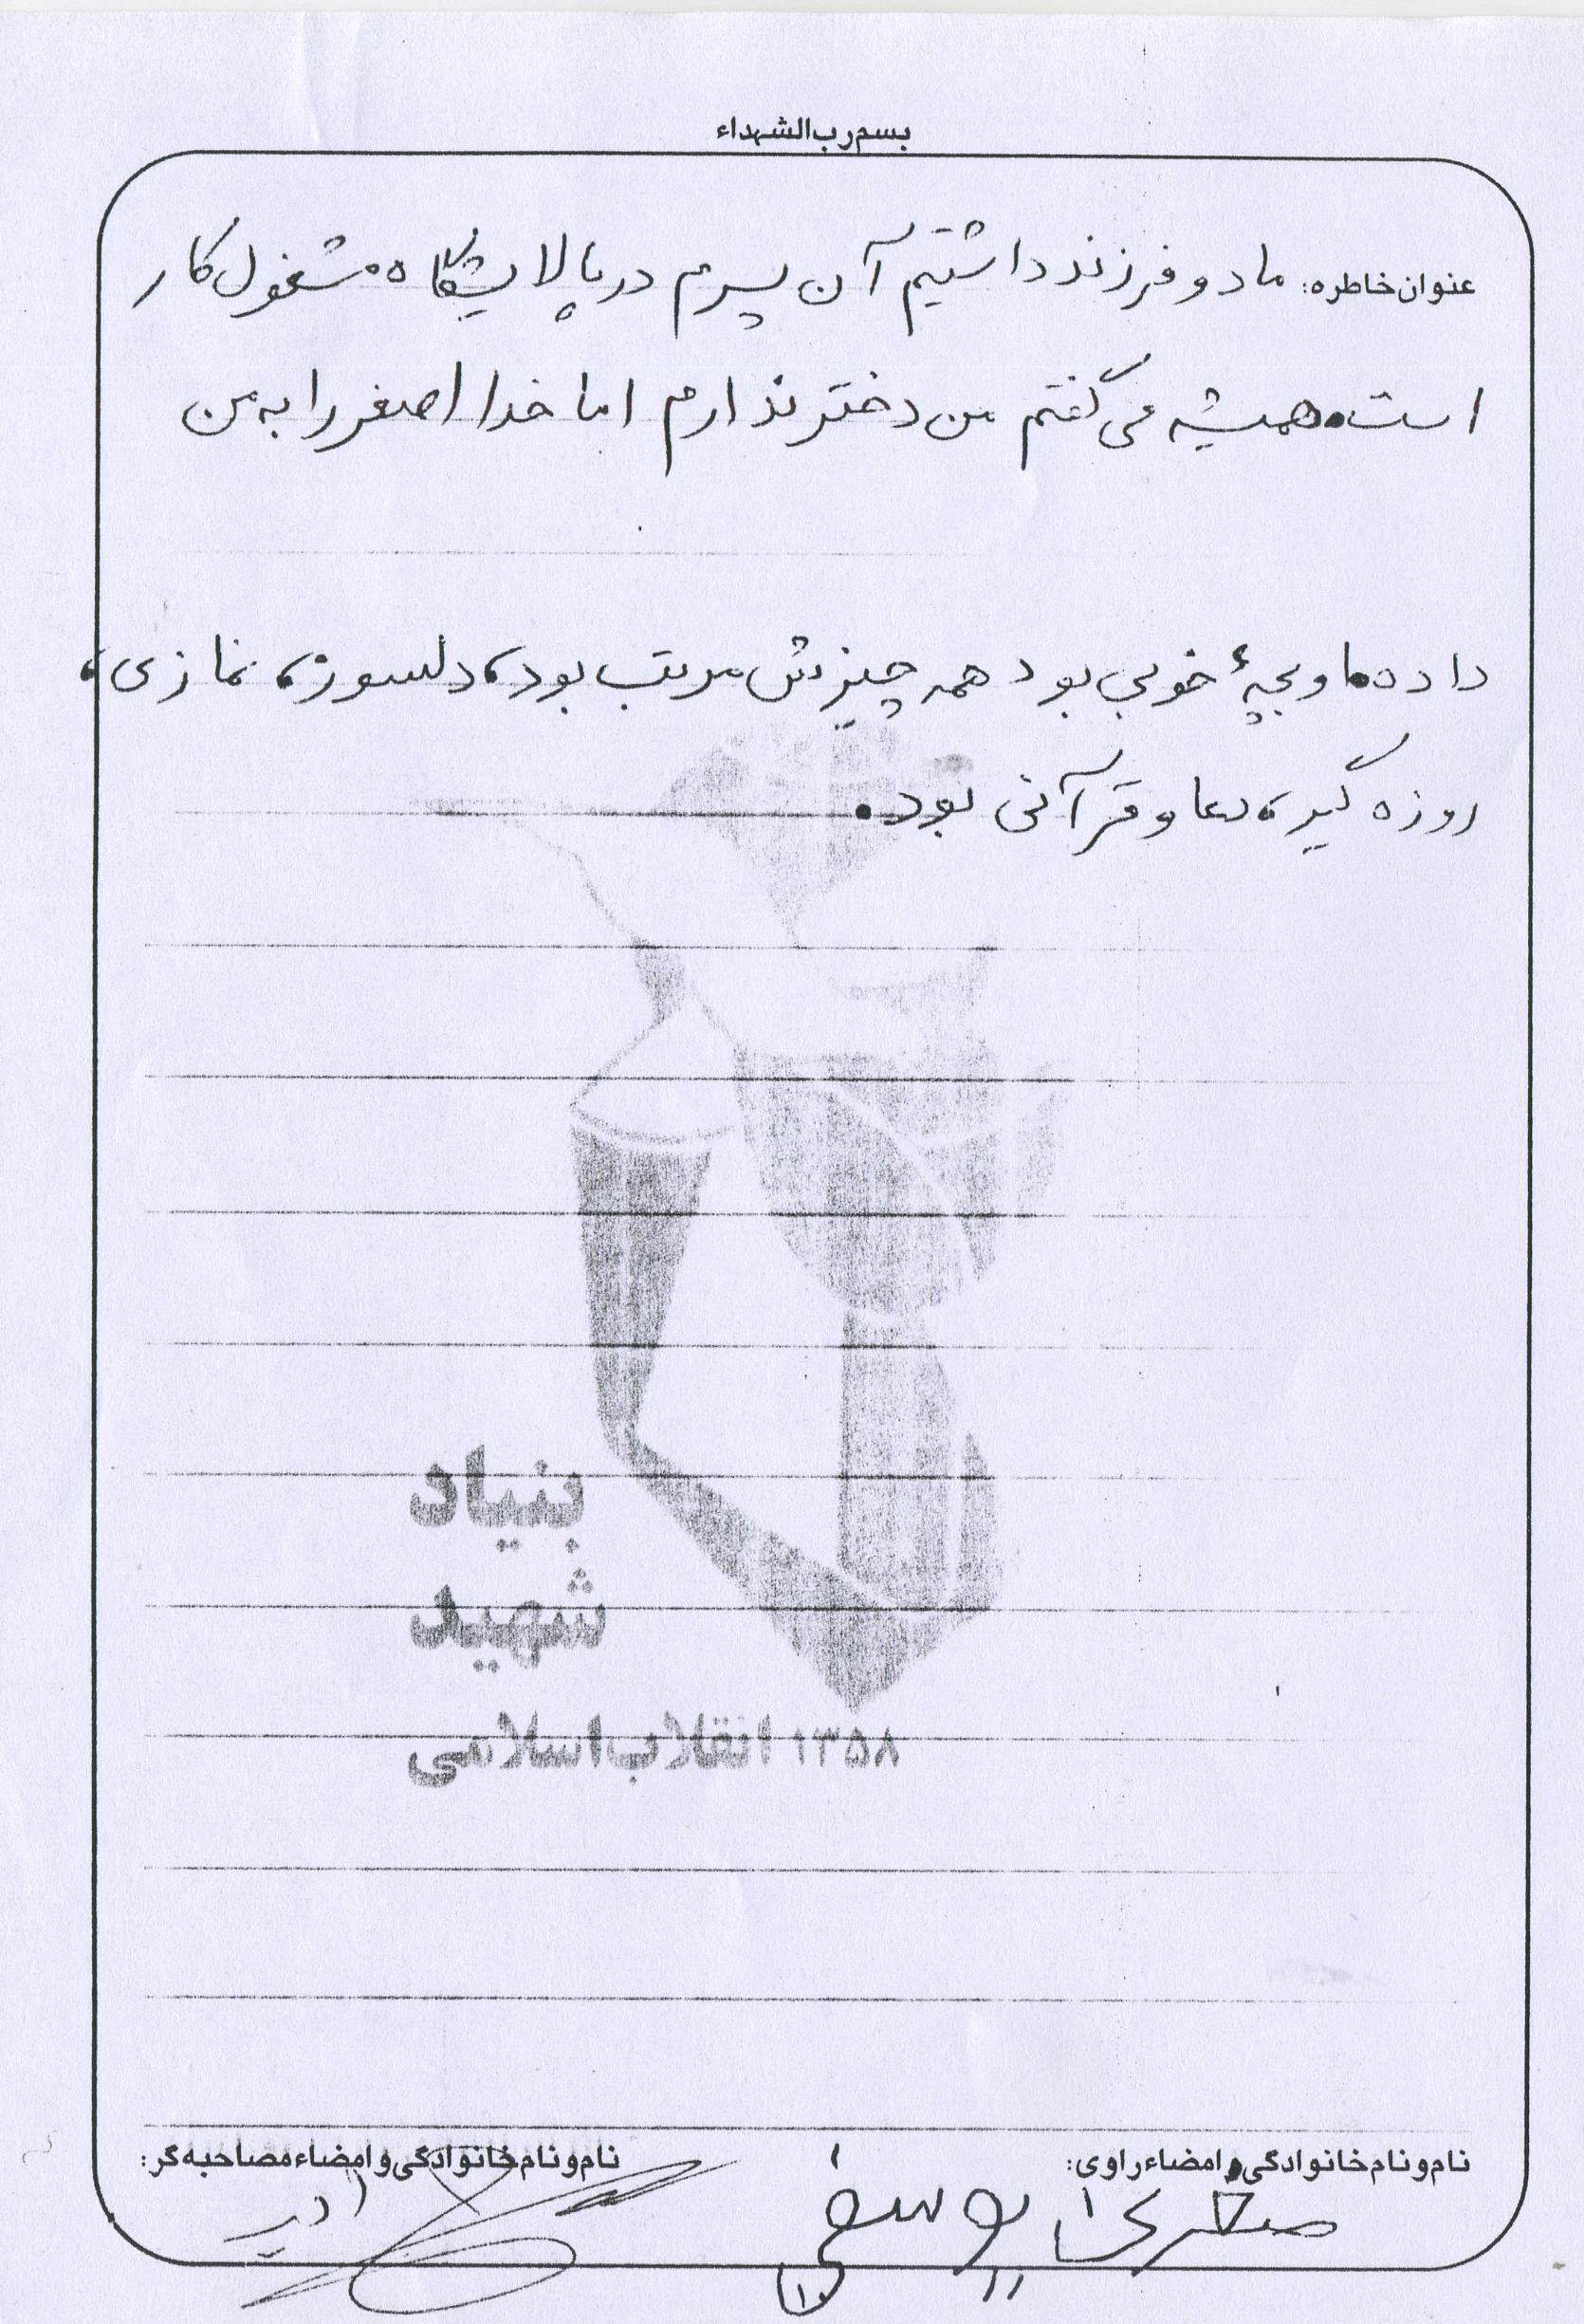 بسم رب الشهداء
عنوان خاطره: ما دو فرزند داشتیم آن پسرم در پالایشگاه مشغول کار
است. همیشه می گفتم من دختر ندارم اما خدا اصغر را به من
داده. او بچهٔ خوبی بود همه چیزش مرتب بود، دلسوز، نمازی،
روزه گیر، دعا و قرآنی بود.
بنیاد
شهید
۱۳۵۸ انقلاب اسلامی
نام و نام خانوادگی و امضاء راوی:
نام و نام خانوادگی و امضاء مصاحبه گر:
صغری یوسفی